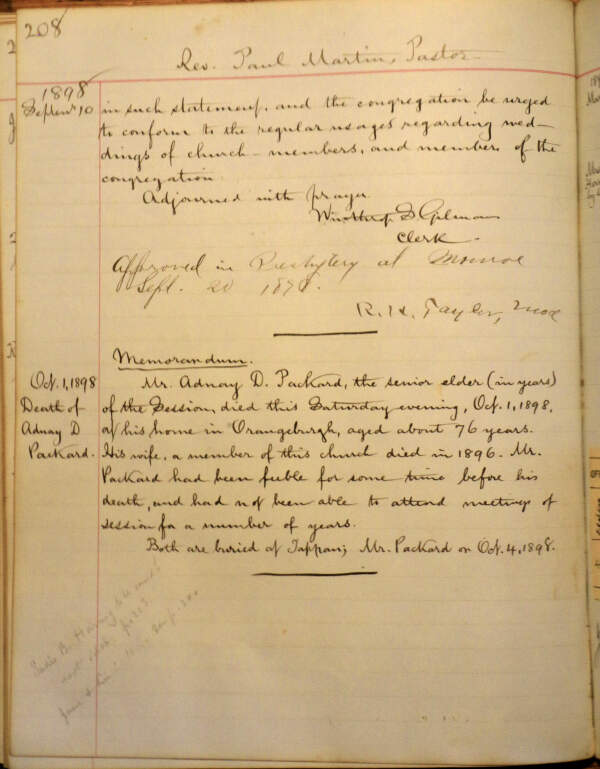 208
Rev. Paul Martin, Pastor
1898
Septem'r 10
in such statement, and the congregation be urged
to conform to the regular usages regarding wed-
dings of church-members, and members of the
congregation.
Adjourned with prayer.
Winthrop S. Gilman
Clerk.
Approved in Presbytery at Monroe
Sept. 20 1898.
R. H. Taylor, Mod
Memorandum.
Oct. 1, 1898
Death of
Adnay D
Packard.
Mr. Adnay D. Packard, the senior elder (in years)
of the Session, died this Saturday evening, Oct. 1, 1898,
at his home in Orangeburgh, aged about 76 years.
His wife, a member of this church died in 1896. Mr.
Packard had been feeble for some time before his
death, and had not been able to attend meetings of
session for a number of years.
Both are buried at Tappan; Mr. Packard on Oct. 4, 1898.